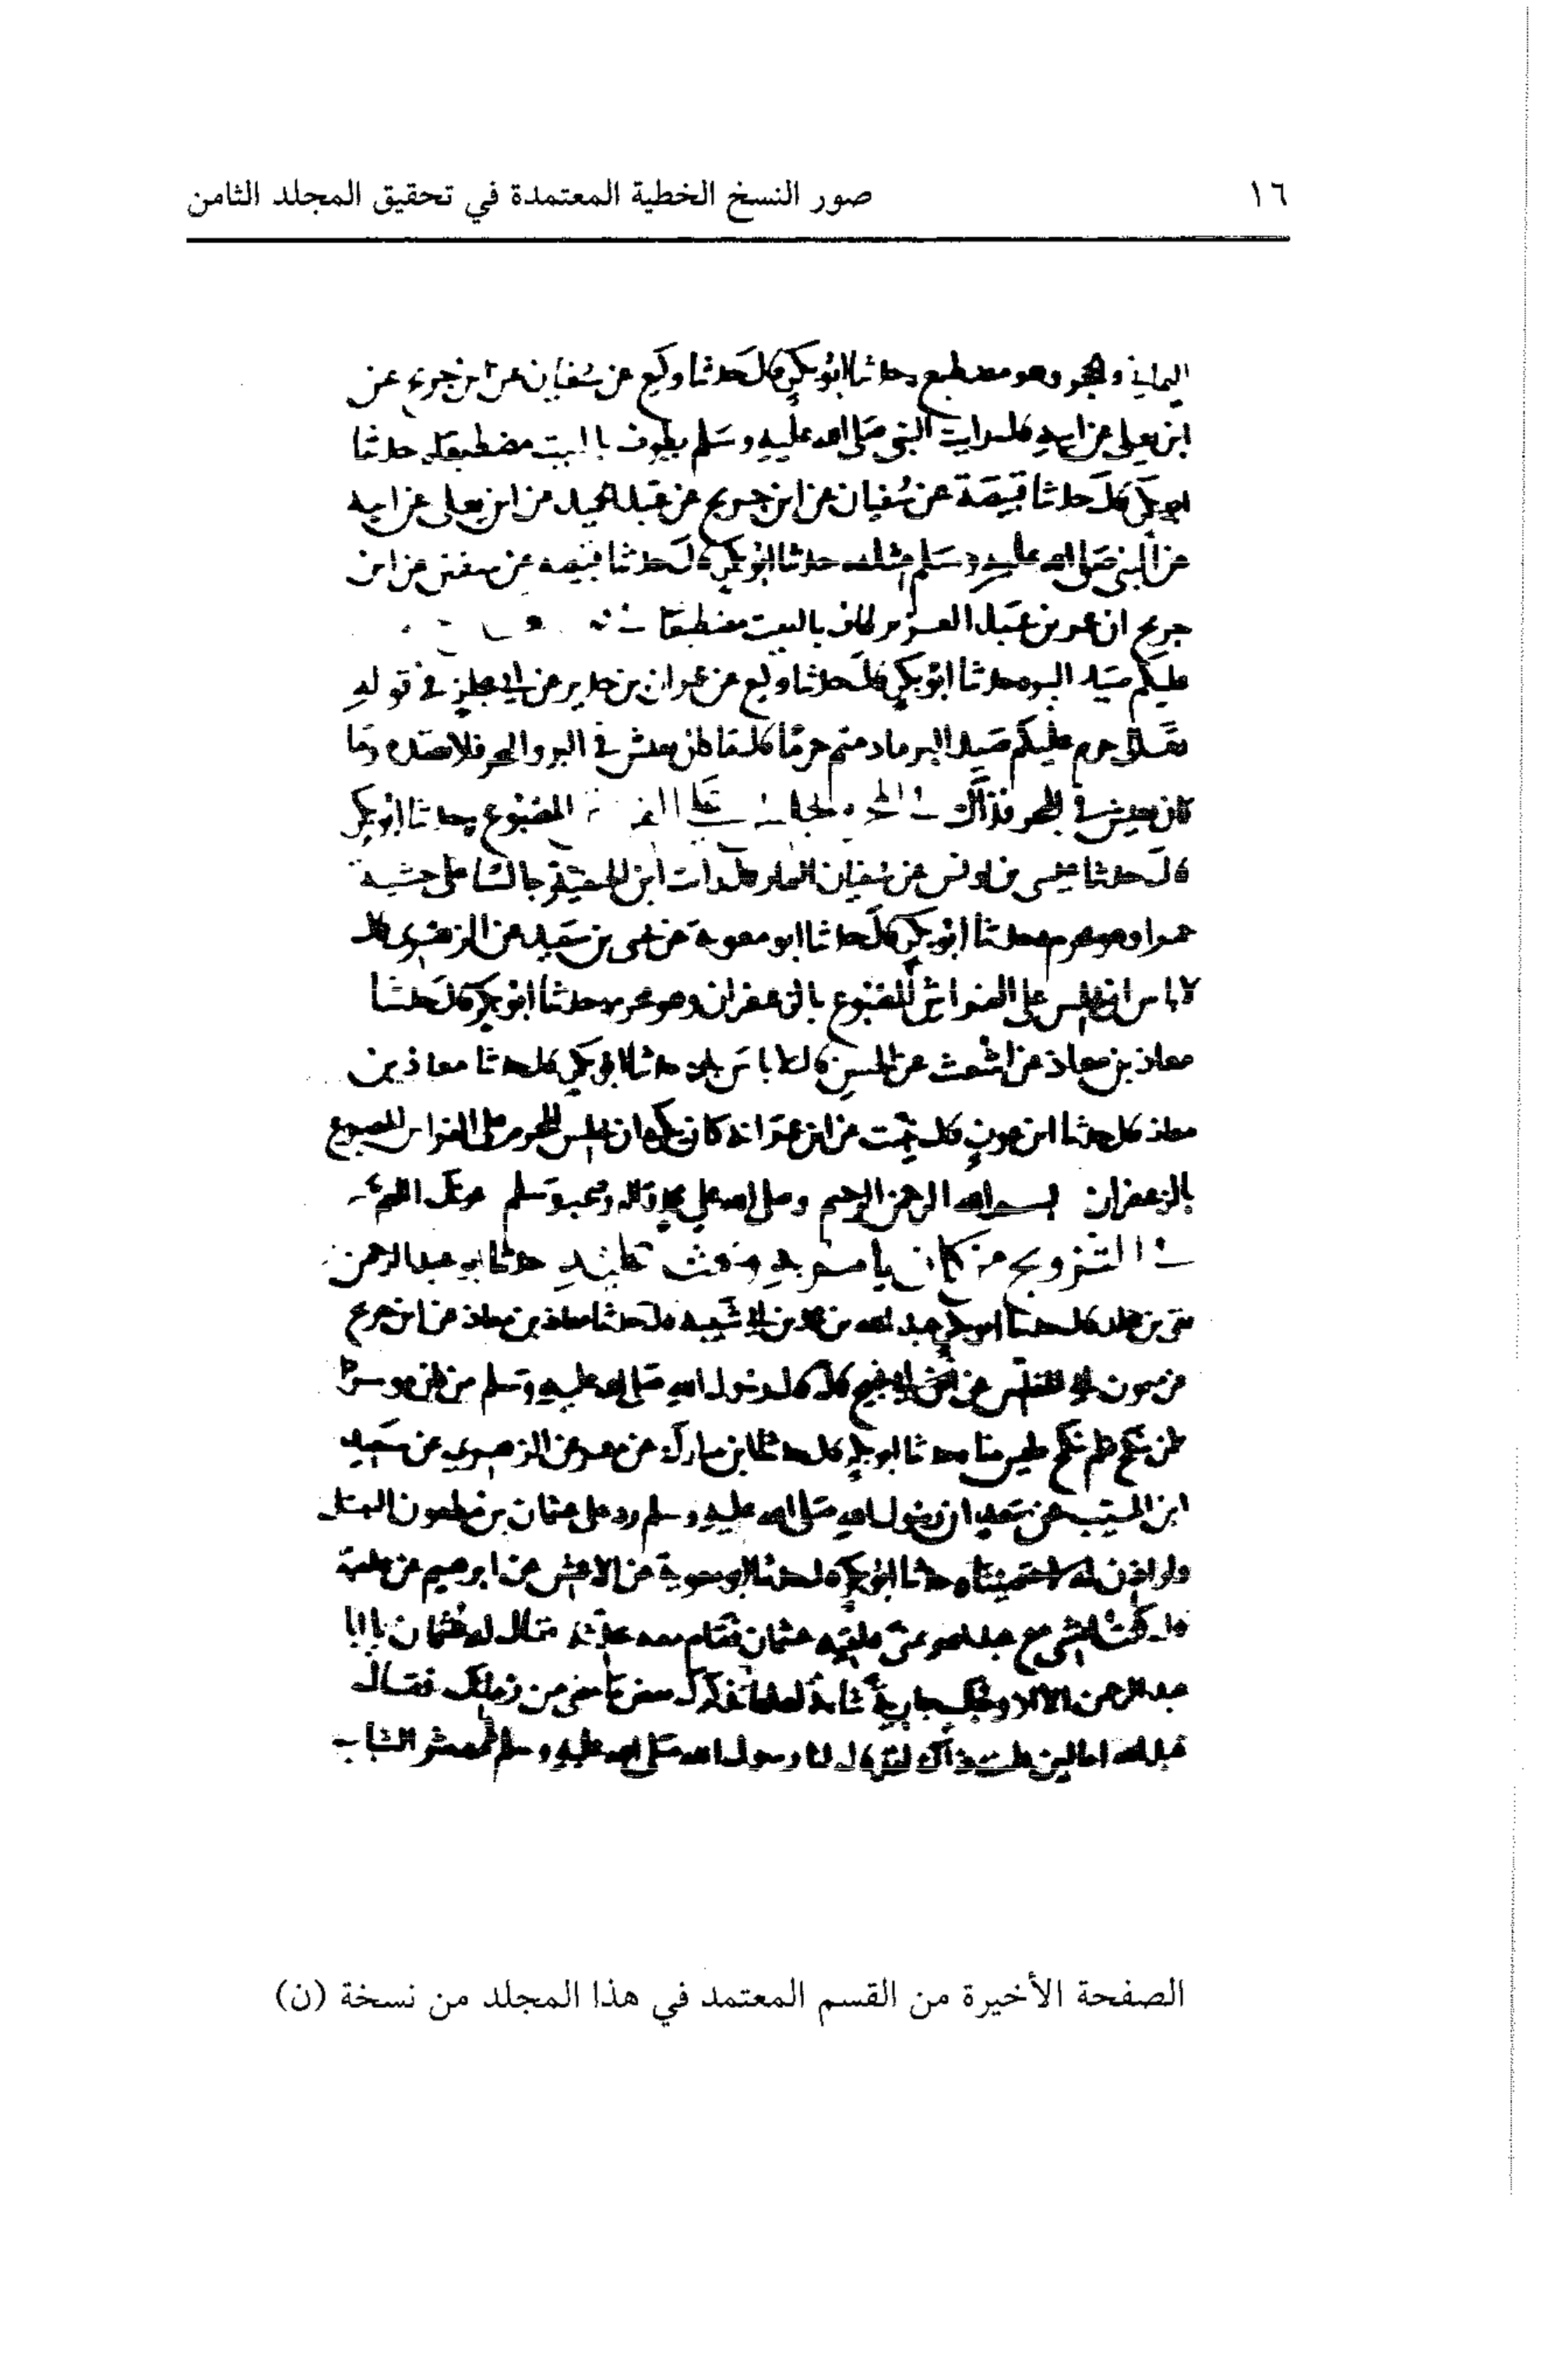 ١٦ صور النسخ الخطية المعتمدة في تحقيق المجلد الثامن
والحجر وهو مضطبع حدثنا ابو بكر قال حدثنا وكيع عن سفيان عن ابن جريج عن
ابن يعلى عن ابيه قال رايت النبي صلى الله عليه وسلم يطوف بالبيت مضطبعا حدثنا
ابو بكر قال حدثنا قبيصة عن سفيان عن ابن جريج عن عبد الحميد عن ابن يعلى عن ابيه
عن النبي صلى الله عليه وسلم مثله حدثنا ابو بكر قال حدثنا قبيصه عن سفين عن ابن
جريج ان عمر بن عبد العزيز طاف بالبيت مضطبعا
عليكم صيد البر حدثنا ابو بكر قال حدثنا وكيع عن عمران بن حدير عن ابي مجلز في قوله
حرم عليكم صيد البر ما دمتم حرما قال ما كان يعيش في البر والبحر فلا تصده وما
كان يعيش في البحر فذاك المصبوع حدثنا ابو بكر
قال حدثنا عيسى بن يونس عن سفيان قال رايت ابن الحنفية
وهو محرم حدثنا ابو بكر قال حدثنا ابو معوية عن يحيى بن سعيد عن الزهري قال
لا باس ان يجلس على الفراش المصبوع بالزعفران وهو محرم حدثنا ابو بكر قال حدثنا
معاذ بن معاذ عن اشعث عن الحسن قال لا باس به حدثنا ابو بكر قال حدثنا معاذ بن
معاذ قال حدثنا ابن عون قال عن ابن عمر انه كان يكره ان يجلس المحرم على الفراش المصبوع
بالزعفران بسم الله الرحمن الرحيم وصلى الله على محمد واله وصحبه وسلم
في التزويج من كان يامر به ويحث عليه حدثنا ابو عبد الرحمن
بقي بن مخلد قال حدثنا ابو بكر عبد الله بن محمد بن ابي شيبه قال حدثنا معاذ بن معاذ عن ابن جريج
عن ميمون ابي المغلس عن ابي نجيح قال قال رسول الله صلى الله عليه وسلم من كان موسرا
لان ينكح فلم ينكح فليس منا حدثنا ابو بكر قال حدثنا ابن مبارك عن معمر عن الزهري عن سعيد
ابن المسيب عن سعد ان رسول الله صلى الله عليه وسلم رد على عثمان بن مظعون التبتل
ولو اذن له لاختصينا حدثنا ابو بكر قال حدثنا ابو معوية عن الاعمش عن ابرهيم عن علقمة
قال كنت امشي مع عبد الله بمنى فلقيه عثمان فقام معه يحدثه فقال له عثمان يا ابا
عبد الرحمن الا ازوجك جارية شابة لعلها تذكرك بعض ما مضى من زمانك فقال
عبد الله اما لئن قلت ذاك لقد قال لنا رسول الله صلى الله عليه وسلم يا معشر الشباب
الصفحة الأخيرة من القسم المعتمد في هذا المجلد من نسخة (ن)